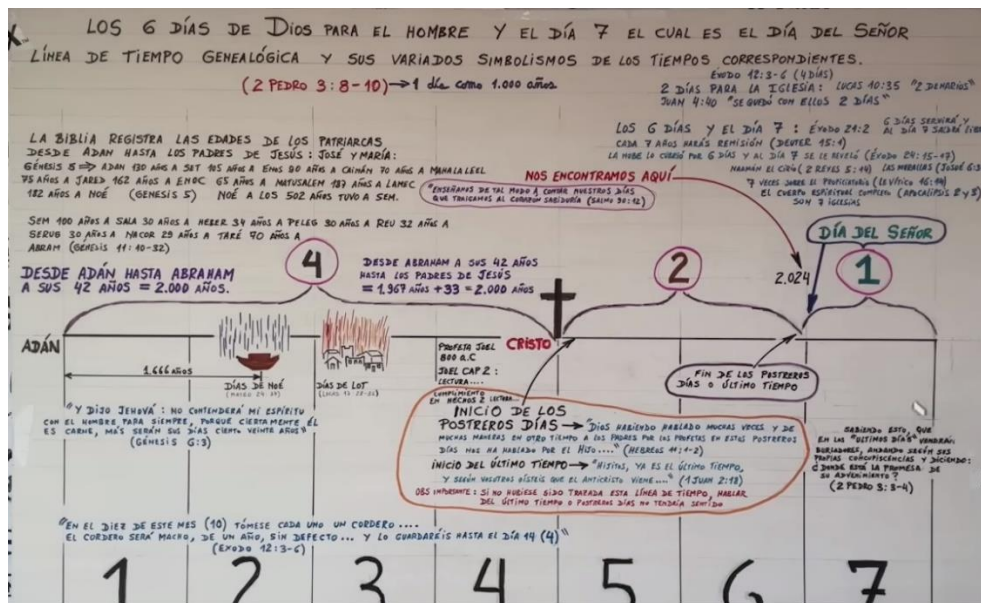 LOS 6 DÍAS DE DIOS PARA EL HOMBRE Y EL DÍA 7 EL CUAL ES EL DÍA DEL SEÑOR
LÍNEA DE TIEMPO GENEALÓGICA Y SUS VARIADOS SIMBOLISMOS DE LOS TIEMPOS CORRESPONDIENTES.
(2 PEDRO 3:8-10) → 1 día como 1.000 años
ÉXODO 12:3-6 (4 DÍAS)
2 DÍAS PARA LA IGLESIA: LUCAS 10:35 "2 DENARIOS"
JUAN 4:40 "SE QUEDÓ CON ELLOS 2 DÍAS"
LA BIBLIA REGISTRA LAS EDADES DE LOS PATRIARCAS
DESDE ADAN HASTA LOS PADRES DE JESÚS: JOSÉ Y MARÍA:
GÉNESIS 5 ⇒ ADAN 130 AÑOS A SET 105 AÑOS A ENOS 90 AÑOS A CAINÁN 70 AÑOS A MAHALALEEL
75 AÑOS A JARED 162 AÑOS A ENOC 65 AÑOS A MATUSALEN 187 AÑOS A LAMEC
182 AÑOS A NOÉ (GENESIS 5) NOÉ A LOS 502 AÑOS TUVO A SEM.
SEM 100 AÑOS A SALA 30 AÑOS A HEBER 34 AÑOS A PELEG 30 AÑOS A REU 32 AÑOS A
SERUG 30 AÑOS A NACOR 29 AÑOS A TARÉ 70 AÑOS A
ABRAM (GENESIS 11:10-32)
LOS 6 DÍAS Y EL DÍA 7: ÉXODO 21:2 6 DÍAS SERVIRÁ Y
AL DÍA 7 SALDRÁ
CADA 7 AÑOS HARÁS REMISIÓN (DEUTER 15:1)
LA NUBE LO CUBRIÓ POR 6 DÍAS Y AL DÍA 7 SE LE REVELÓ (ÉXODO 24:15-17)
NAAMÁN EL SIRIO (2 REYES 5:14) LAS MURALLAS (JOSUÉ 6:3
7 VECES SOBRE EL PROPICIATORIO (LEVÍTICO 16:14)
EL CUERPO ESPIRITUAL COMPLETO (APOCALIPSIS 2 y 3)
SON 7 IGLESIAS
NOS ENCONTRAMOS AQUÍ
"ENSÉÑANOS DE TAL MODO A CONTAR NUESTROS DÍAS
QUE TRAIGAMOS AL CORAZÓN SABIDURÍA (SALMO 90:12)
DÍA DEL SEÑOR
DESDE ADÁN HASTA ABRAHAM
A SUS 42 AÑOS = 2.000 AÑOS.
4
DESDE ABRAHAM A SUS 42 AÑOS
HASTA LOS PADRES DE JESÚS
= 1.967 AÑOS + 33 = 2.000 AÑOS.
2
2.024
1
ADÁN
1.666 AÑOS
DÍAS DE NOÉ
(MATEO 24:37)
DÍAS DE LOT
PROFETA JOEL
800 a.C
JOEL CAP 2:
LECTURA....
CUMPLIMIENTO
EN HECHOS 2 LECTURA...
CRISTO
FIN DE LOS POSTREROS
DÍAS O ÚLTIMO TIEMPO
"Y DIJO JEHOVÁ: NO CONTENDERÁ MI ESPÍRITU
CON EL HOMBRE PARA SIEMPRE, PORQUE CIERTAMENTE ÉL
ES CARNE, MÁS SERÁN SUS DÍAS CIENTO VEINTE AÑOS"
(GÉNESIS 6:3)
INICIO DE LOS
POSTREROS DÍAS → "DIOS HABIENDO HABLADO MUCHAS VECES Y DE
MUCHAS MANERAS EN OTRO TIEMPO A LOS PADRES POR LOS PROFETAS EN ESTOS POSTREROS
DÍAS NOS HA HABLADO POR EL HIJO...." (HEBREOS 11:1-2)
INICIO DEL ÚLTIMO TIEMPO → "HIJITOS, YA ES EL ÚLTIMO TIEMPO,
Y SEGÚN VOSOTROS OÍSTEIS QUE EL ANTICRISTO VIENE...." (1 JUAN 2:18)
OBS IMPORTANTE: SI NO HUBIESE SIDO TRAZADA ESTA LÍNEA DE TIEMPO, HABLAR
DEL ÚLTIMO TIEMPO O POSTREROS DÍAS NO TENDRÍA SENTIDO
SABIENDO ESTO, QUE
EN LOS "ULTIMOS DÍAS" VENDRÁN
BURLADORES, ANDANDO SEGÚN SUS
PROPIAS CONCUPISCENCIAS Y DICIENDO:
¿DONDE ESTÁ LA PROMESA DE
SU ADVENIMIENTO?
(2 PEDRO 3:3-4)
"EN EL DIEZ DE ESTE MES (10) TÓMESE CADA UNO UN CORDERO....
EL CORDERO SERÁ MACHO, DE UN AÑO, SIN DEFECTO... Y LO GUARDARÉIS HASTA EL DÍA 14 (4)"
(ÉXODO 12:3-6)
1 2 3 4 5 6 7